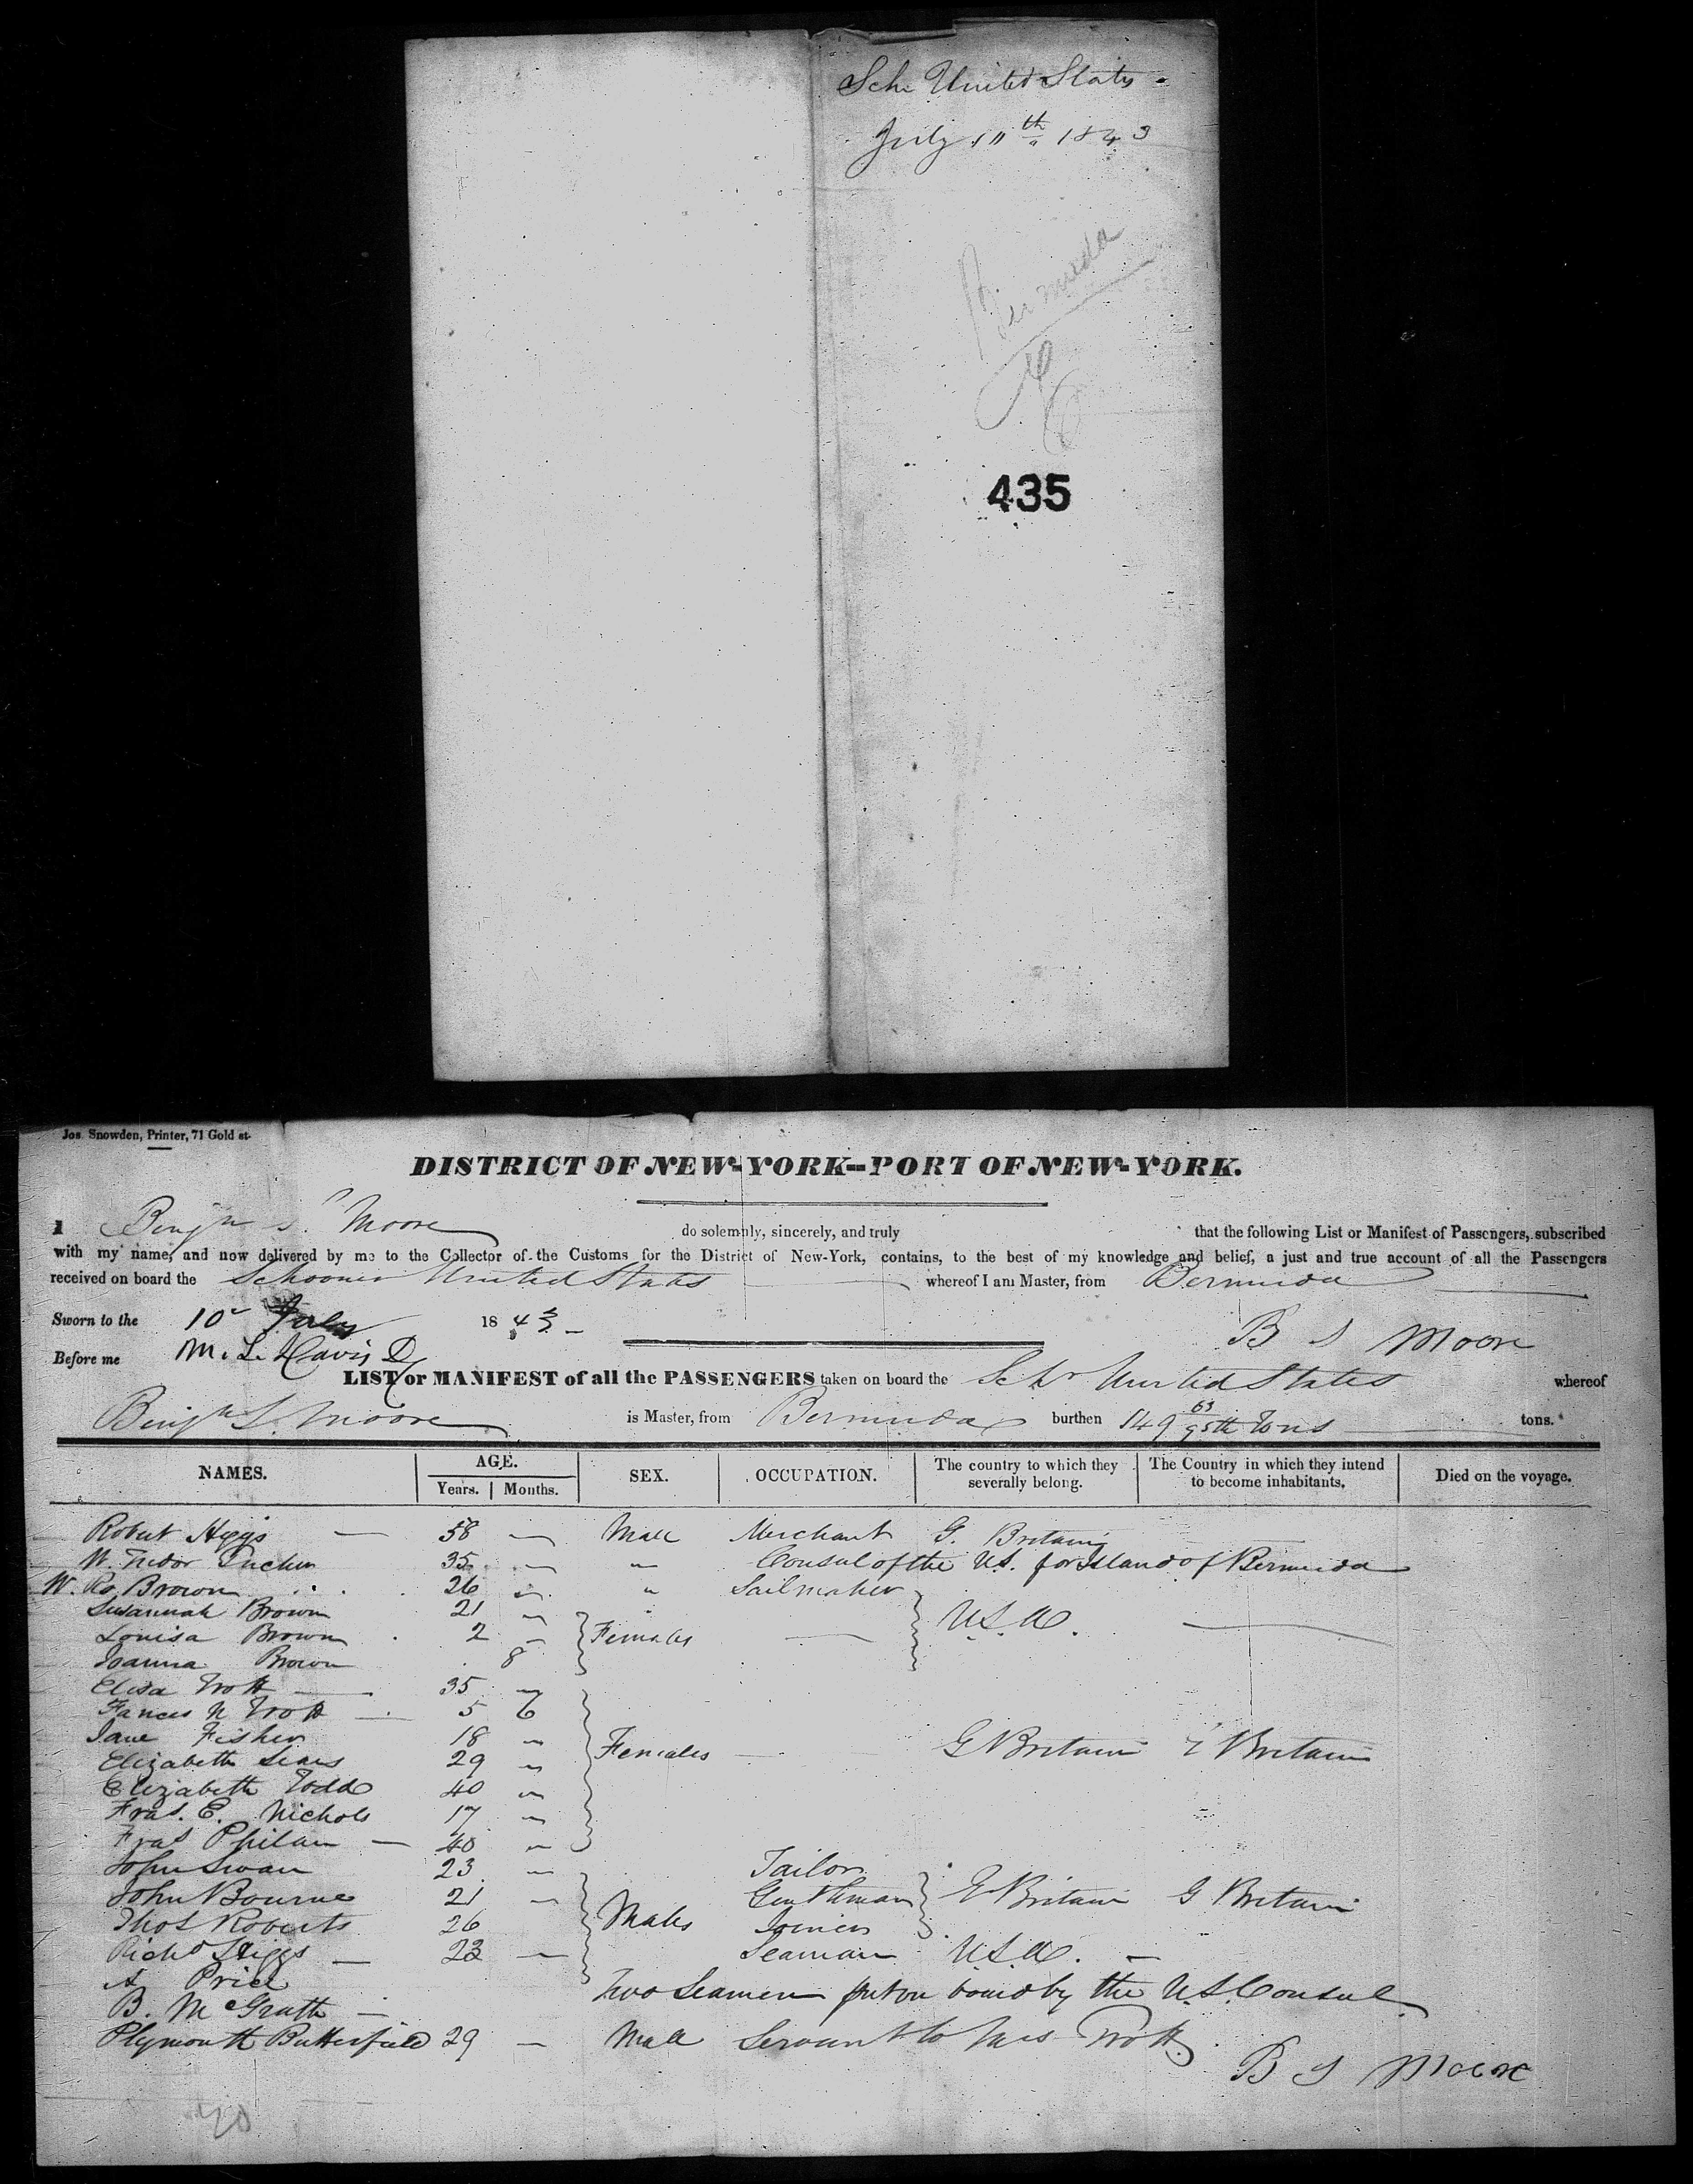 Sch United States
July 10th 1843
Bermuda
435
Jos. Snowden, Printer, 71 Gold st.
DISTRICT OF NEW-YORK--PORT OF NEW-YORK.
I Benjn S. Moore do solemnly, sincerely, and truly that the following List or Manifest of Passengers, subscribed
with my name, and now delivered by me to the Collector of the Customs for the District of New-York, contains, to the best of my knowledge and belief, a just and true account of all the Passengers
received on board the Schooner United States whereof I am Master, from Bermuda
Sworn to the 10 July 1843
B S Moore
Before me M. L. Davis D
LIST or MANIFEST of all the PASSENGERS taken on board the Schr United States whereof
Benjn S. Moore is Master, from Bermuda burthen 149 63/95th Tons tons.
NAMES. AGE. Years. Months. SEX. OCCUPATION. The country to which they severally belong. The Country in which they intend to become inhabitants. Died on the voyage.
Robert Higgs — 58 — Male Merchant G. Britain
W. Tudor Tucker 35 — " Consul of the U.S. for Island of Bermuda
W. Ro. Brown 26 " " Sailmaker
Susannah Brown 21 "
Louisa Brown 2 — Females — U.S.A.
Joanna Brown 8
Eliza Trott — 35 "
Fances N Trott — 5 6
Jane Fisher 18 "
Elizabeth Sears 29 " Females — G Britain G Britain
Elizabeth Todd 40 "
Fras. E. Nichols 17 "
Fras Philan — 40 "
John Swan 23 — Tailor
John Bourne 21 — Gentleman G Britain G Britain
Thos Roberts 26 Males Joiner
Richd Higgs — 23 — Seaman U.S.A. —
A Price Two Seamen put on board by the U.S. Consul
B. McGrath —
Plymouth Butterfield 29 — Male Servant to Mrs Trott
B S Moore
20